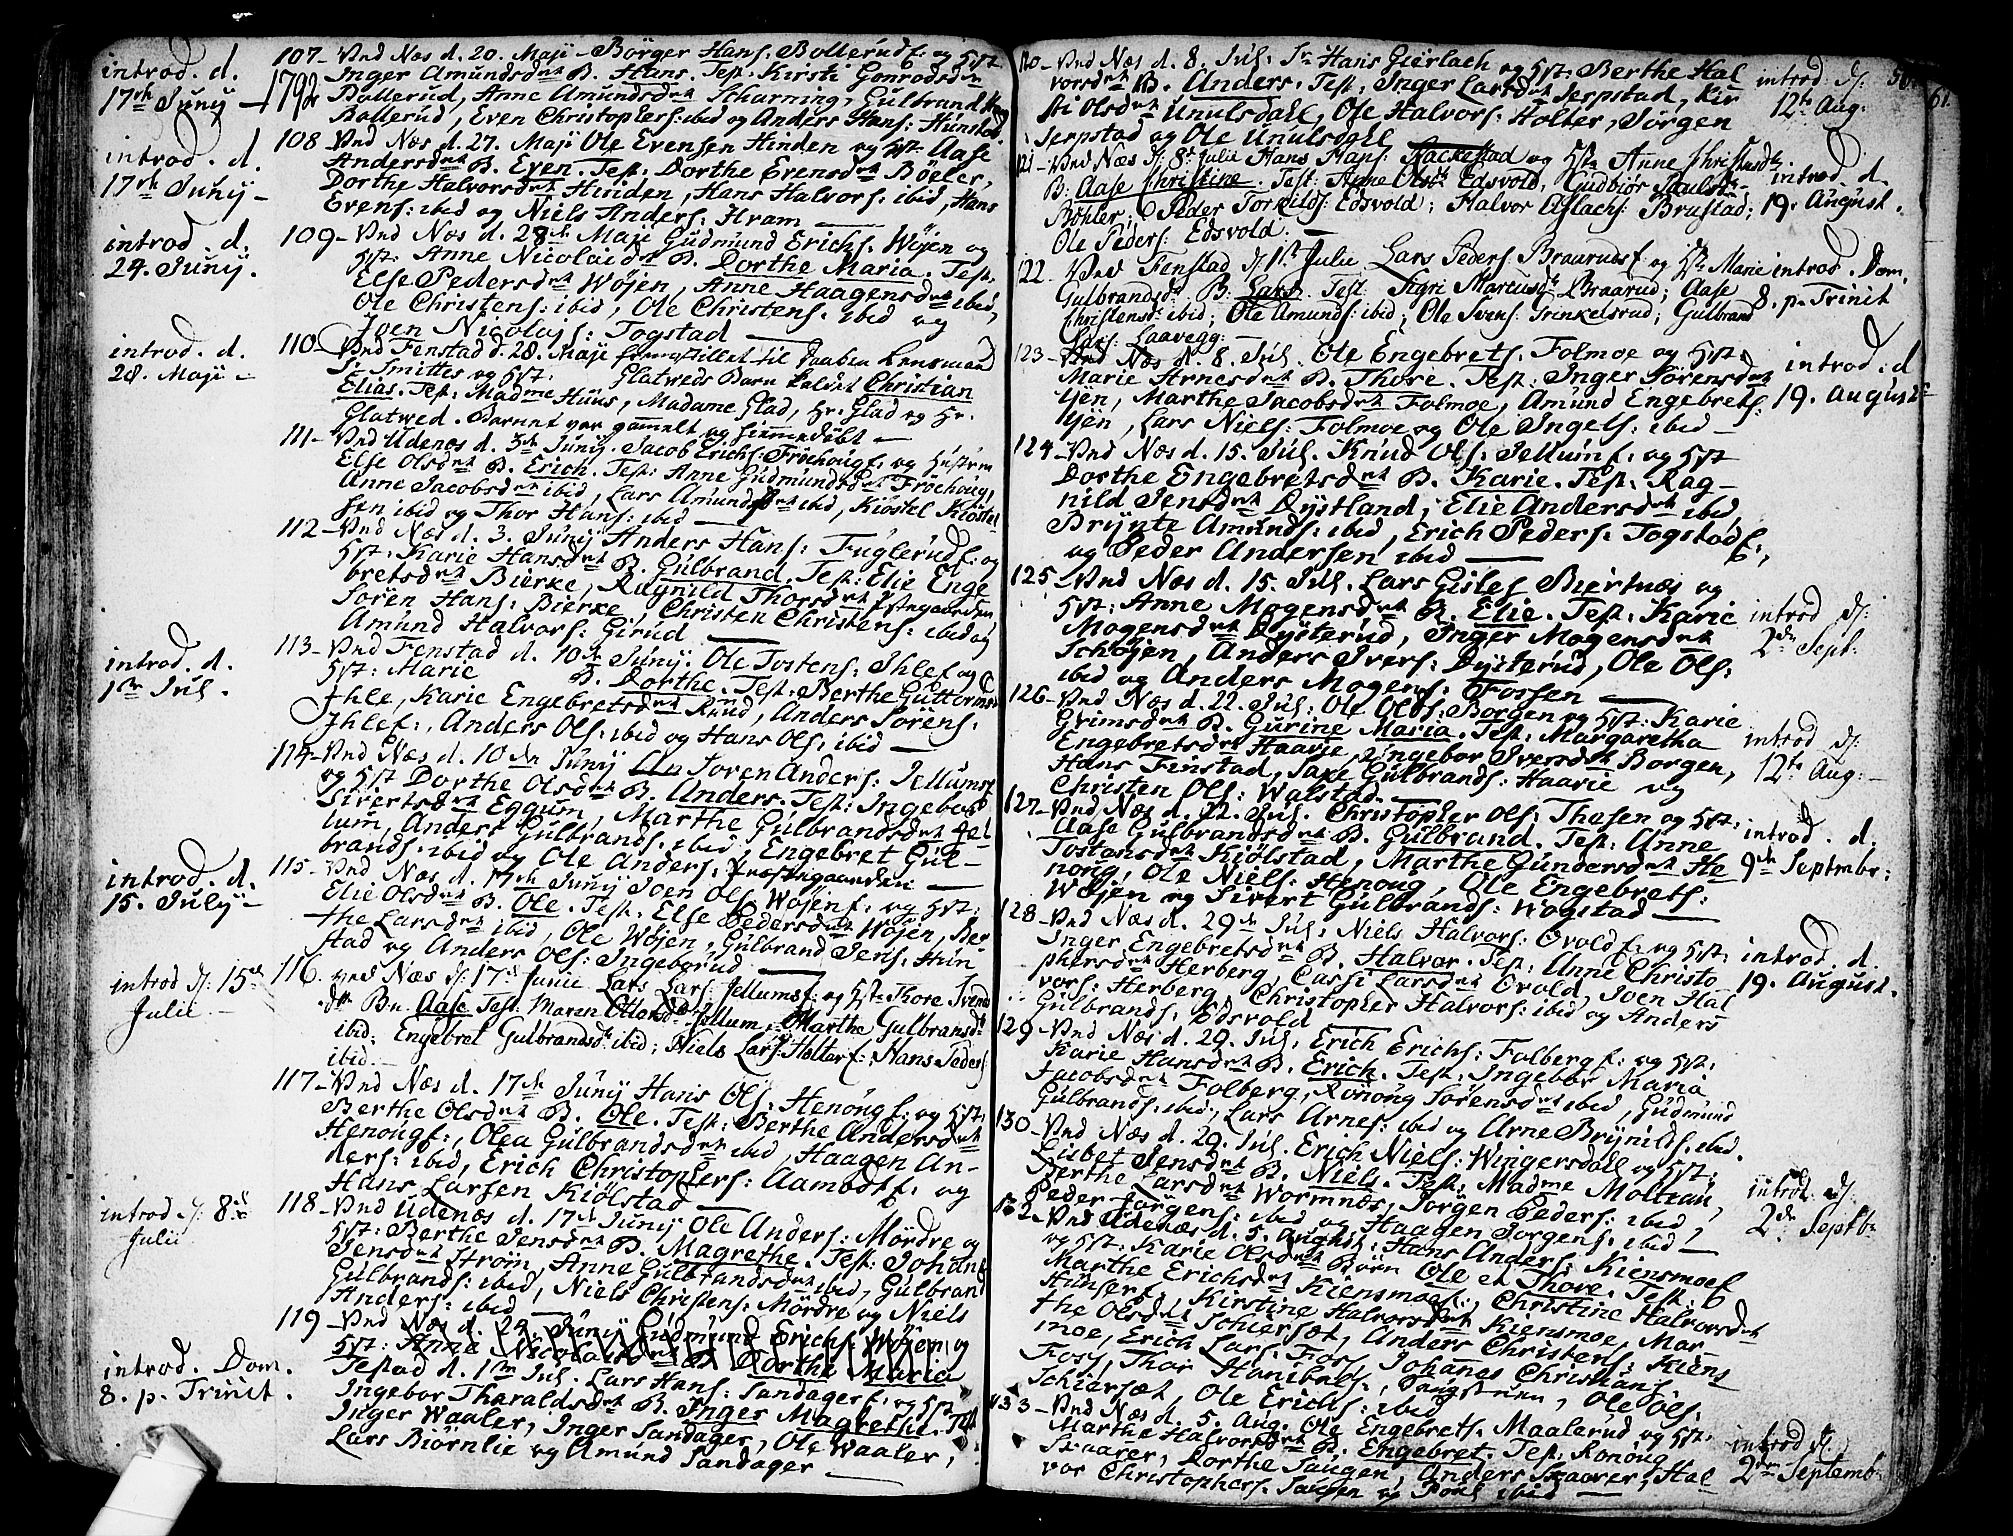 introd. d.
17de Junij
1792
107- Vnd Næs d. 20. Maji Börger Hans: Bollerudf: og Hst
Inger Amundsdat B. Hans. Test: Kirsti Gonrodsdn
Bollerud, Anne Amundsdat Scharning, Gulbrand
Bollerud, Even Christophers: ibid og Anders Hans: Hunstad
introd. d.
17de Junij -
108 Vnd Næs d. 27. Maji Ole Evensen Hinden og Hst. Aase
Andersdat B. Even. Test: Dorthe Evensdat Böeler,
Dorthe Halvorsdat Hinden, Hans Halvors: ibid, Hans
Evens: ibid og Niels Anders: Hvam
introd. d.
24. Junij.
109- Vnd Næs d. 28de Maji Gudmund Erichs. Wöjen og
Hst. Anne Nicolaid B. Dorthe Maria. Test:
Else Pedersdat Wöjen, Anne Haagensdat ibid,
Ole Christens: ibid, Ole Christens: ibid og
Joen Nicolajs: Togstad
introd. d.
28. Maji -
110- Vnd Fenstad d. 28. Maji fremstillet til Daaben Lensmand
Sr Smittes og Hst: Glatweds Barn kaldet Christian
Elias. Test: Madme Huus, Madame Glad, Hr. Glad og Hr.
Glatwed. Barnet var gammelt og hiemmedöbt
111- Vnd Udenæs d. 3de Junij Jacob Erichs: Fröehougf. og Hustrue
Else Olsdat B. Erich. Test: Anne Gudmundsdat Fröehoug,
Anne Jacobsdat ibid, Lars Amunds ibid, Kiöstel Kiöstel
sen ibid og Thor Hans: ibid
112- Vnd Næs d. 3. Junij Anders Hans: Fuglerudf: og
Hst: Karie Hansdat B. Gulbrand. Test: Elie Enge
bretsdat Bierke, Ragnild Thorsdat Pstegaarden,
Sören Hans: Bierke, Christen Christens: ibid og
Amund Halvors: Girud
introd. d.
1ste Jul.
113- Vnd Fenstad d. 10de Junij. Ole Tostens: Ihlef og
Hst: Marie B. Dorthe. Test: Berthe Guttorms
Ihle, Karie Engebretsdat Ruud, Anders Sörens:
Ihlef:, Anders Ols: ibid og Hans Ols: ibid
114- Vnd Næs d. 10den Junij Soren Anders: Jellumsf
og Hst Dorthe Olsdat B. Anders. Test: Ingebor
Sivertsdat Eggum, Marthe Gulbrandsdat Jel
lum, Anders Gulbrands: ibid, Engebret Gul-
brands: ibid og Ole Anders: Præstegaarden
introd. d.
15. Julij-
115- Vnd Næs d. 17de Junij Joen Ols: Wöjenf: og Hst:
Elie Olsdat B. Ole. Test: Else Pedersdat Wöjen, Ber
the Larsdat ibid, Ole Wöjen, Gulbrand Jens: Hun
stad og Anders Ols: Ingeborud
introd d: 15de
Julii -
116. vnd Næs d: 17d Junie Lars Lars: Jellumsf: og Hst: Thore Svends
dtr Bn. Aase Test. Maren Ottersdr Jellum, Marthe Gulbrandsdr
ibid; Engebret Gulbrandsd: ibid; Niels Lars: Holterf; Hans Peders
ibid.
117- Vnd Næs d. 17de Junij Hans Ols: Henöugf: og Hst:
Berthe Olsdat B. Ole. Test: Berthe Andersdat
Henougf:, Olea Gulbrandsdat ibid, Haagen An-
ders: ibid, Erich Christophers: Aambodtf: og
Hans Larsen Kiölstad
introd d: 8de
Julii
118- Vnd Udenæs d. 17de Junij Ole Anders: Mördre og
Hst: Berthe Jensdat B. Magrethe. Test: Johane
Jensdat Ström, Anne Gulbrandsdat ibid, Gulbrand
Gulbrands: ibid, Niels Christens: Mördre og Niels
Anders: ibid
introd. Dom.
8. p. Trinit.
119 Vnd Næs d. 24 Junij Gudmund Erichs: Wöjen og
Hst: Anne Nicolaidat B. Dorthe Maria
Testad d. 1ste Jul. Lars Hans: Sandagerf: og Hst
Ingebor Tharaldsdat B. Inger Magrethe. Test
Inger Waaler, Inger Sandager, Ole Waaler,
Lars Biörnlie og Amund Sandager
61.
120- Vnd Næs d. 8. Jul: Sr Hans Gierlach og Hst: Berthe Hal
vorsdat B. Anders. Test: Inger Larsdat Serpstad, Kir
sti Olsdat Unulsdall, Ole Halvors: Holter, Sörgen
Serpstad og Ole Unulsdall
introd d:
12te Aug:
121- Vnd Næs d: 8d Julii Hans Hans: Hackestad og Hst: Anne Christensdr.
B: Aase Christine. Test: Anne Olsdr Edsvold, Gudbiör Paulsdr
Böhler; Peder Torkilds: Edsvold; Halvor Aslachs: Brustad;
Ole Peders: Edsvold.
introd. d.
19. August.
122. Vnd Fenstad d: 1st Julie Lars Peders: Braarudsf og Hst: Marie
Gulbrandsdr B: Lars. Test. Sigri Marcusdr Braarud; Aase
Christensdr ibid; Ole Amunds: ibid; Ole Svens: Trinkelsrud; Gulbrand
Lars: Laavegg.
introd. Dom.
8. p. Trinit
123- Vnd Næs d. 8. Jul. Ole Engebrets: Folmoe og Hst:
Marie Arnesdat B. Thore. Test: Inger Sörensdat
Ujen, Marthe Jacobsdat Folmoe, Amund Engebrets:
Ujen, Lars Niels: Folmoe og Ole Ingels: ibid
introd: d
19. August
124- Vnd Næs d. 15. Jul. Knud Ols: Jellumf: og Hst
Dorthe Engebretsdat B. Karie. Test: Rag-
nild Jensdat Dystland, Elie Andersdat ibid
Brynte Amunds: ibid, Erich Peders: Togstadf:,
og Peder Andersen ibid
125- Vnd Næs d. 15. Jul. Lars Gisles Biertnæs og
Hst: Anne Mogensdat B. Elie. Test: Karie
Mogensdat Dysterud, Inger Mogensdat
Schöjen, Anders Ivers: Dysterud, Ole Ols:
ibid og Anders Mogens: Fossen
introd d:
2de Sept:
126- Vnd Næs d. 22. Jul: Ole Olss: Borgen og Hst: Karie
Grimsdat B. Gurine Maria. Test: Margaretha
Engebretsdat Haarie, Ingebor Svensdat Borgen,
Hans Finstad, Saxe Gulbrands: Haarie og
Christen Ols: Walstad.
introd d:
12te Aug:
127- Vnd Næs d. 22. Jul. Christopher Ols: Thesen og Hst:
Aase Gulbrandsdat B. Gulbrand. Test: Anne
Tostansdat Kiölstad, Marthe Gundersdat He
noug, Ole Niels: Henoug, Ole Engebrets:
Wöjen og Sivert Gulbrands: Wogstad
introd. d:
9de Septmbr:
128- Vnd Næs d. 29de Jul: Niels Halvors: Ovoldf: og Hst:
Inger Engebretsdat B. Halvor. Test: Anne Christo
phersdat Herberg, Cassi Larsdat Ovold, Joen Hal
vors: Herberg, Christopher Halvors: ibid og Anders
Gulbrands: Edsvold
introd. d.
19. August.
129- Vnd Næs d. 29. Jul: Erich Erichs: Folbergf: og Hst:
Karie Hansdat B. Erich. Test: Ingebor Maria
Jacobsdat Folberg, Ronoug Sörensdat ibid, Gudmund
Gulbrands: ibid, Lars Arnes: ibid og Arne Brynilds: ibid.
130- Vnd Næs d. 29. Jul. Erich Niels: Wingersdall og Hst:
Lisbet Jensdat B. Niels. Test: Madme Moltzau,
Berthe Larsdat Wormnæs, Jörgen Peders: ibid,
Peder Jörgens: ibid og Haagen Jorgens: ibid
132- Vnd Udenæs d. 5. August: Hans Anders: Kiensmoef
og Hst: Karie Olsdat Börn Ole et Thore. Test:
Marthe Erichsdat Kiensmoef:, Christine Halvorsdat
Hunserf:, Kirstine Halvorsdat Kiensmoe, Mar-
the Olsdat Schiersæt, Anders Christens: Kiens
moe, Erich Lars: Foss, Johanes Christians:
Foss, Thor Hanibals:, Ole Ols:
Schiersæt, Ole Erichs: ibid
introd. d:
2de Septb:
133- Vnd Næs d. 5. Aug. Ole Engebrets: Maalerud og Hst:
Marthe Halvorsdat B. Engebret. Test: Ronoug
Skaarer, Dorthe Saugen, Anders Skaarer, Hal
vor Christophers: Saugen og Poul ibid
introd d:
2den Septemb: